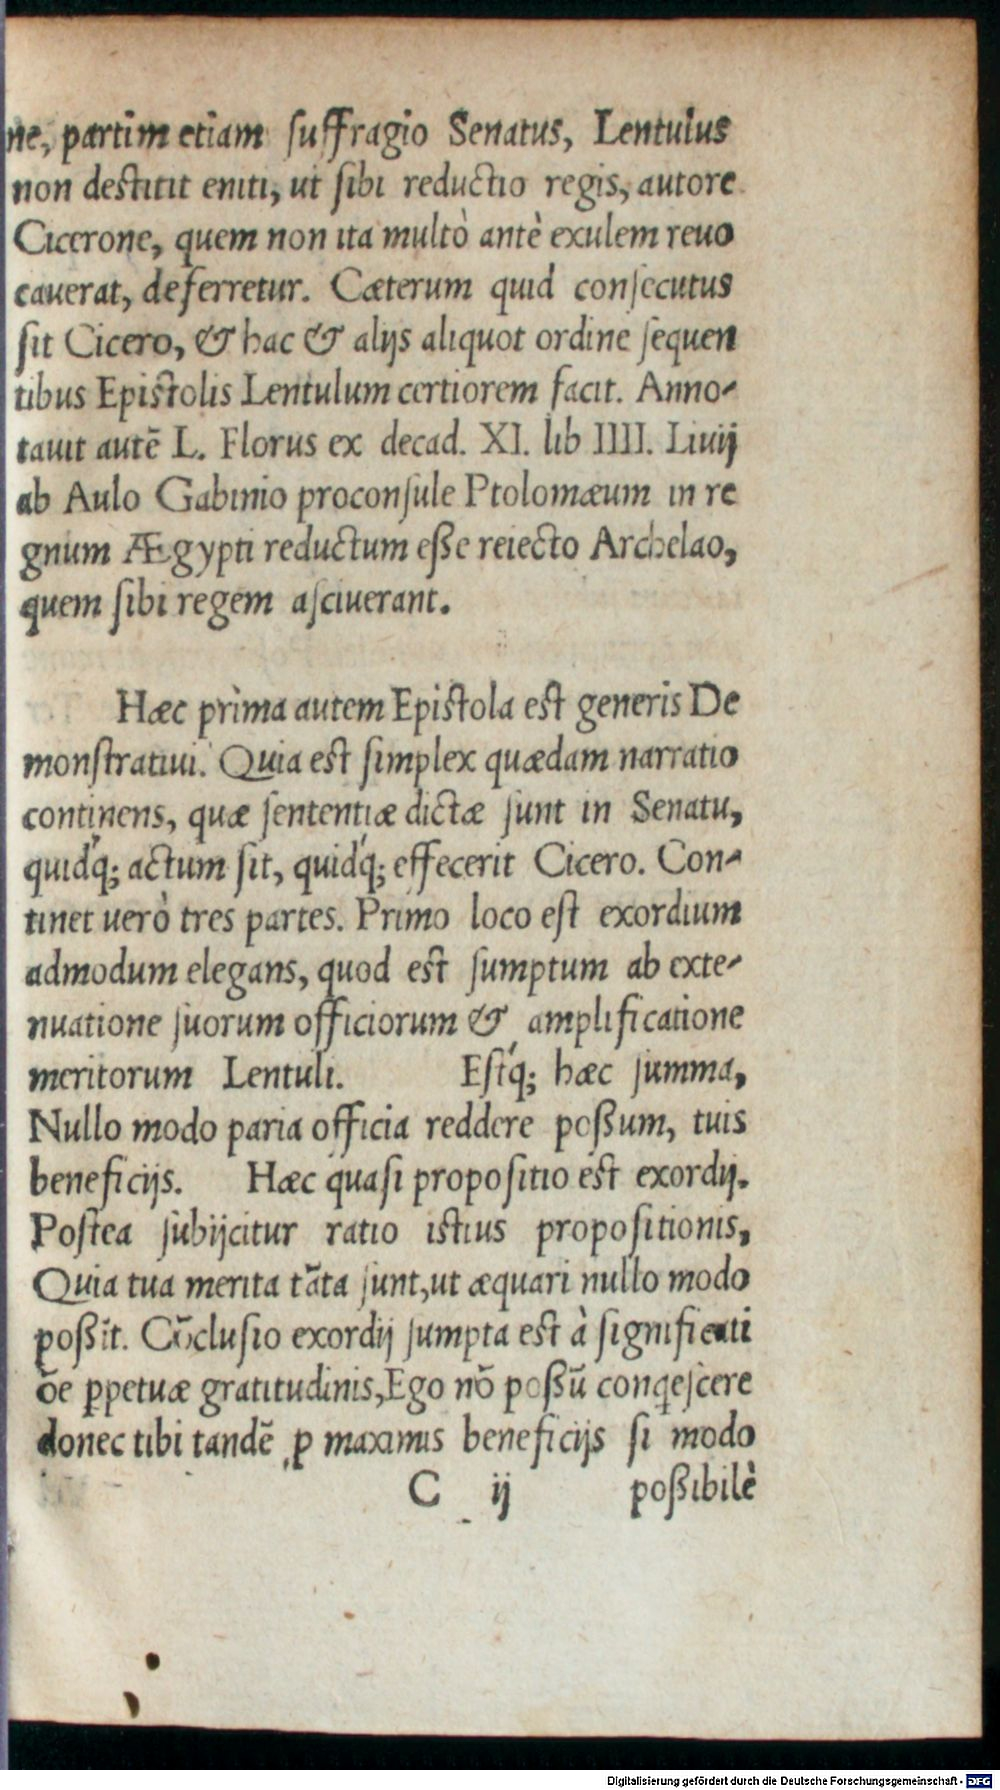 ne, partim etiam suffragio Senatus, Lentulus
non destitit eniti, ut sibi reductio regis, autore
Cicerone, quem non ita multò antè exulem reuo
cauerat, deferretur. Cæterum quid consecutus
sit Cicero, & hac & alijs aliquot ordine sequen
tibus Epistolis Lentulum certiorem facit. Anno-
tauit autē L. Florus ex decad. XI. lib IIII. Liuij
ab Aulo Gabinio proconsule Ptolomæum in re
gnum Ægypti reductum eße reiecto Archelao,
quem sibi regem asciuerant.
Hæc prima autem Epistola est generis De
monstratiui. Quia est simplex quædam narratio
continens, quæ sententiæ dictæ sunt in Senatu,
quidq́; actum sit, quidq́; effecerit Cicero. Con-
tinet uerò tres partes. Primo loco est exordium
admodum elegans, quod est sumptum ab exte-
nuatione suorum officiorum & amplificatione
meritorum Lentuli. Estq́; hæc summa,
Nullo modo paria officia reddere poßum, tuis
beneficijs. Hæc quasi propositio est exordij.
Postea subijcitur ratio istius propositionis,
Quia tua merita tāta sunt, ut æquari nullo modo
poßīt. Cōclusio exordij sumpta est à significati
ōe ꝑpetuæ gratitudinis, Ego nō poßū conq̣escere
donec tibi tandē ꝑ maximis beneficijs si modo
C ij poßibilè
Digitalisierung gefördert durch die Deutsche Forschungsgemeinschaft - DFG